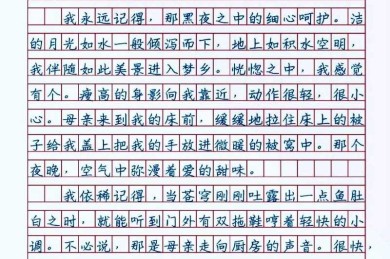 我永远记得，那黑夜之中的细心呵护。洁
的月光如水一般倾泻而下，地上如积水空明，
我伴随如此美景进入梦乡。恍惚之中，我感觉
有个。瘦高的身影向我靠近，动作很轻，很小
心。母亲来到我的床前，缓缓地拉住床上的被
子给我盖上把我的手放进微暖的被窝中。那个
夜晚，空气中弥漫着爱的甜味。
我依稀记得，当苍穹刚刚吐露出一点鱼肚
白之时，就能听到门外有双拖鞋哼着轻快的小
调。不必说，那是母亲走向厨房的声音。很快，